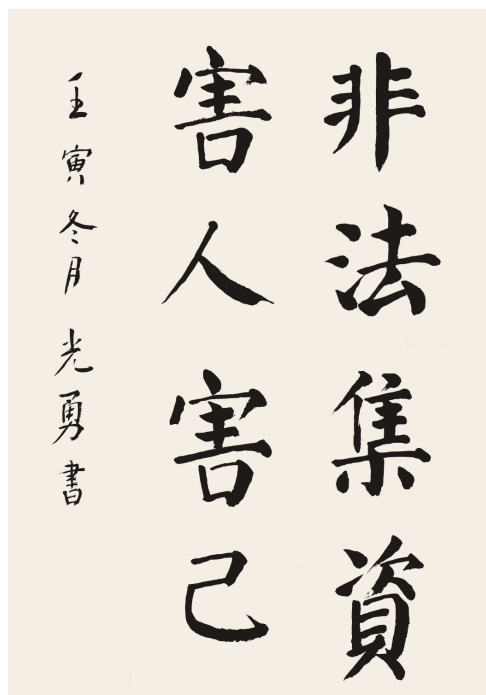 非法集資
害人害己
壬寅冬月 光勇書